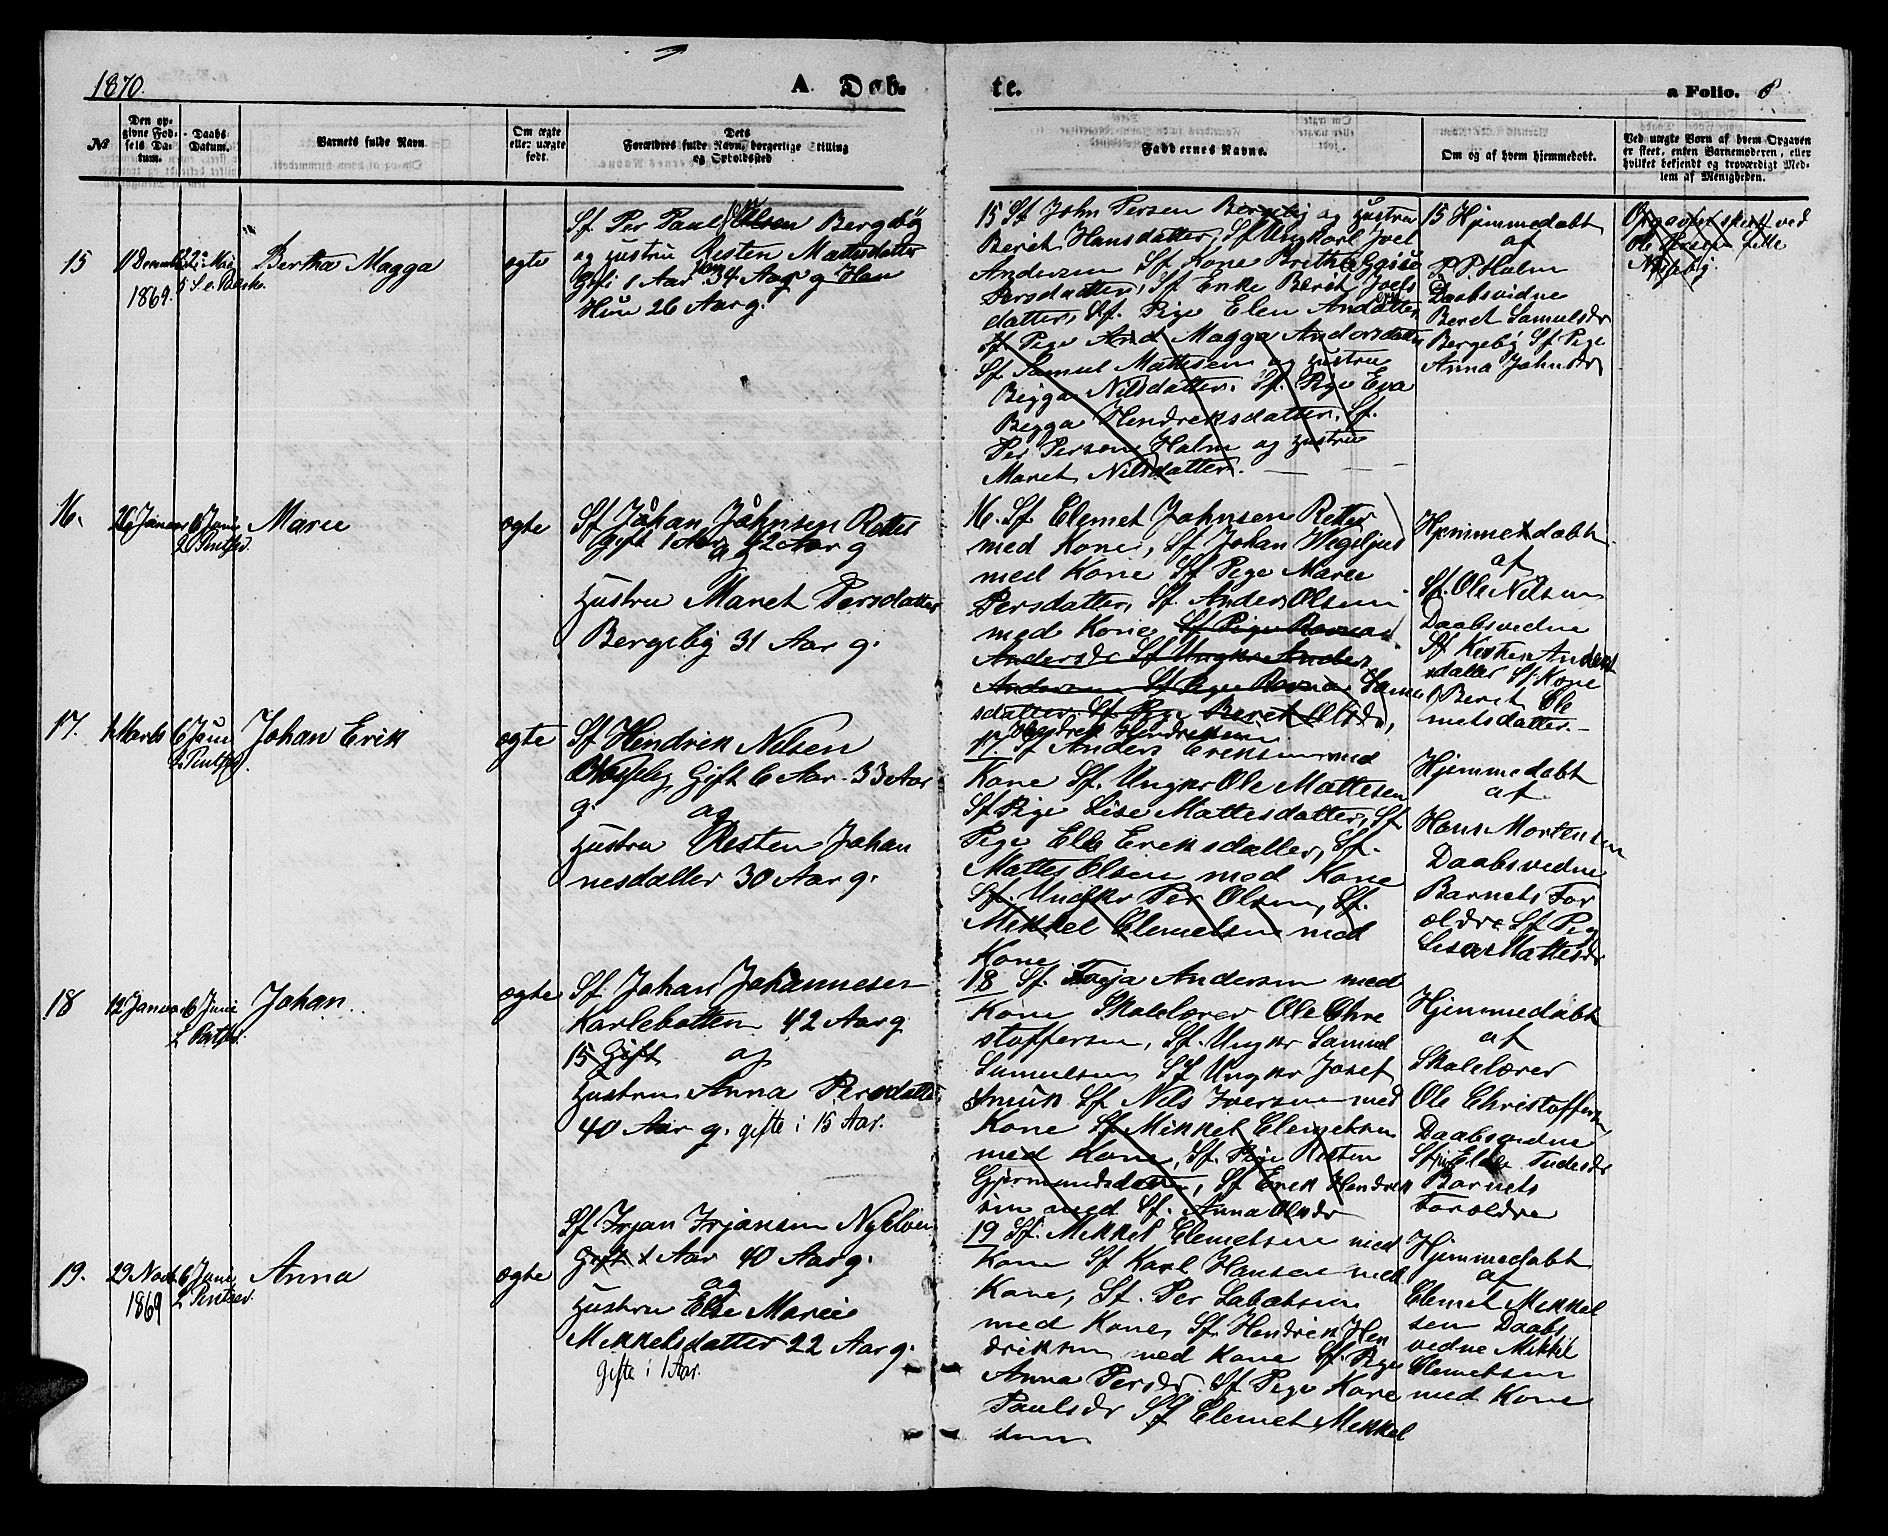 1870.
A. Døb-
te.
a Folio. 6
No
Den opgivne Fødsels Datum.
Daabs Datum.
Barnets fulde Navn
Om ægte eller uægte født.
Dets
Forældres fulde Navn, borgerlige Stilling og Opholdssted
Faddernes Navne.
Om og af hvem hjemmedøbt.
Ved uægte Børn af hvem Opgaven er skeet, enten Barnemoderen, eller hvilket bekjendt og troværdigt Medlem af Menigheden.
15
1869.
Bertha Magga
ægte
Sf. Per Paul Olsen Bergeby
og Hustru Kesten Mattisdatter
Gift 1 Aar 34 Aar g Han
Hun 26 Aar g.
15 Sf John Persen Bergeby og Hustru
Beret Hansdatter, Sf Ungkarl Joel
Andersen Sf. Kone Britha Gaise
Persdatter, Sf Enke Berit Joels
datter, Sf. Pige Elen And.datter
Sf Pige And Magga Andersdatter
Sf Samul Mattesen og Hustru
Bigga Nilsdatter. Sf. Pige Eva
Begga Hendreksdatter. Sf.
Per Persen Halm og Hustru
Maret Nilsdatter.
15 Hjemmedøbt
af
P. P. Halm
Daabsvidne
Beret Samulsdr
Bergeby Sf Pige
Anna Johnsdr
Opgaven skeet ved
Ole
16.
26 Januar
6 Juni
2 Pintsd.
Maree
ægte
Sf Johan Johnsen Retter
Gift 1 Aar 42 Aar g
og
Hustru Maret Persdatter
Bergeby 31 Aar g.
16. Sf. Elemet Johnsen Retter
med Kone, Sf Johan Wegeljus
med Kone Sf Pige Maree
Persdatter, Sf. Anders Olsen
med Kone Sf Pige Ravna
Andersdr Sf Ungkr Anders
Andersen Sf Pige Ravna Samu
sdatter. Sf Pige Beret Olsdr,
Hjemmedøbt
af
Sf. Ole Nilsen
Daabsvedne
Sf Kirsten Anders
datter Sf Kone
Beret Cle
metsdatter.-
17.
1 Marts
6 Juni
2 Pintsd.
Johan Erik
ægte
Sf Hendrik Nilsen
Næseby Gift 6 Aar 33 Aar
g. og
Hustru Kesten Johan
nesdatter 30 Aar g.
Hendrek Hendreksen
17 Sf Anders Ereksen med
Kone Sf. Ungkr Ole Mattesen
Sf Pige Lise Mattesdatter, Sf
Pige Ele Ereksdatter, Sf.
Mattes Olsen med Kone
Sf. Ungkr Per Olsen, Sf.
Mikkel Clemetsen med
Kone
Hjemmedøbt
af
Hans Mortensen
Daabsvedne
Barnets For
ældre Sf Pige
Lisa Mattesdr
18
12 Januar
6 Juni
2 Pintsd.
Johan
ægte
Sf. Johan Johannesen
Karlebotten 42 Aar g
15 Gift og
Hustru Anna Persdatter
40 Aar g. gifte i 15 Aar.
18 Sf. Andersen med
Kone Skolelærer Ole Chre
stoffersen, Sf. Ungkr Samuel
Samuelsen Sf Ungkr Josef
Smuk Sf Nils Iversen med
Kone Sf Mikkel Clemetsen
med Kone, Sf. Pige Kesten
Gjermundsdatter, Sf Erek Hendrek
sen med Sf. Anna Olsdr
Hjemmedøbt
af
Skolelærer
Ole Christoffersen
Daabsvedne
Barnets
Forældre
19.
29 Novb.
1869
6 Juni
2 Pintsd.
Anna
ægte
Sf Irjan Irjansen Nyelven
Gift 1 Aar 40 Aar g.
og
Hustru Else Marie
Mikkelsdatter 22 Aar g.
gifte i 1 Aar.
19 Sf. Mekkel Clemetsen med
Kone Sf Karl Hansen med
Kone, Sf. Per Sabætsen
med Kone, Sf. Hendrik Hen
driksen med Kone Sf. Pige
Anna Persdr. Sf Pige Kone
Paulsdr Sf Clemet Mekkel
sen
Hjemmedøbt
af
Clemet Mekkel
sen Daabs
vedne Mikkel
Clemetsen
med Kone